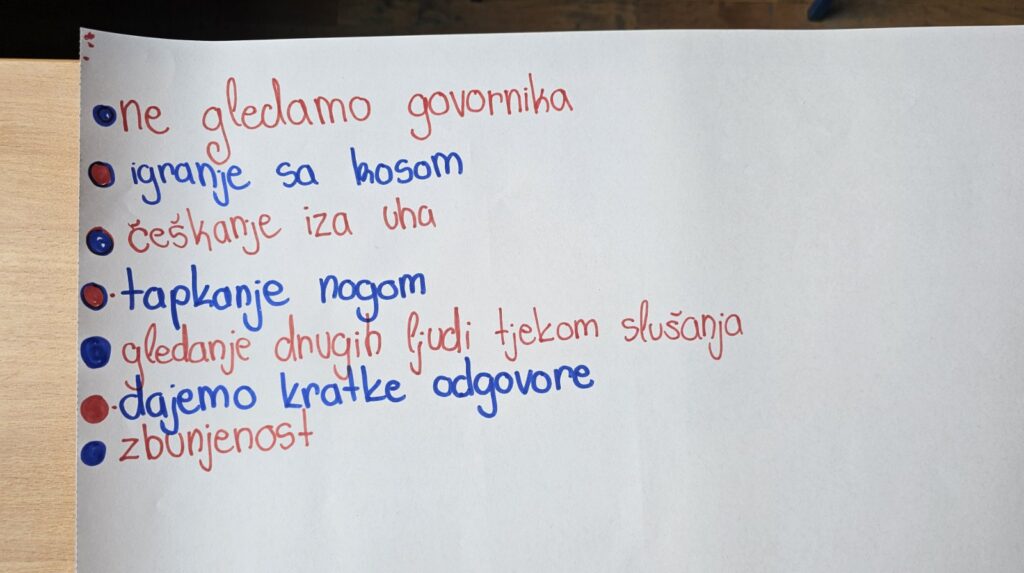 ne gledamo govornika
igranje sa kosom
češkanje iza uha
tapkanje nogom
gledanje drugih ljudi tjekom slušanja
dajemo kratke odgovore
zbunjenost